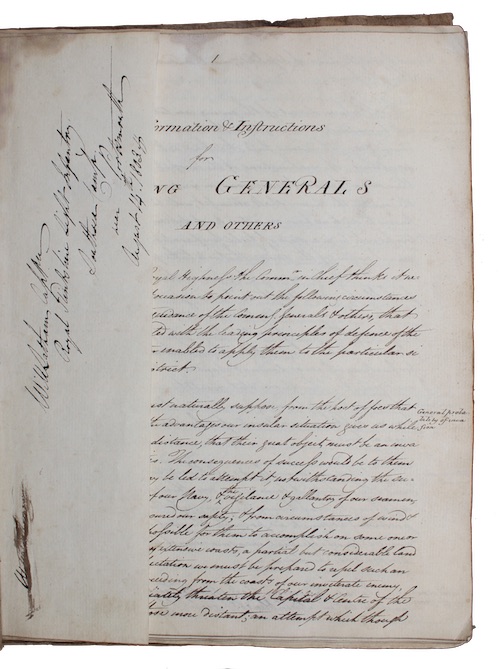 1
formation & Instructions
for
NG GENERALS
AND OTHERS
yal Highness the Comm.r in chief thinks it ne
occasion to point out the following circumstances
guidance of the Comms. Generals & others, that
ted with the leading principles of defence of the
enabled to apply them to the particular si
istrict.
ust naturally suppose from the host of foes that
advantages our insular situation give us while
distance, that their great object must be an inva
The consequences of success would be to them
y be led to attempt it, notwithstanding the su-
f our Navy, & the vigilance & gallantry of our seamen
our safety, & from circumstances of wind &
possible for them to accomplish on some one or
extensive coasts, a partial but considerable land
we must be prepared to repel such an
eeding from the coasts of our inveterate enemy
iately threaten the Capital & centre of the
ose more distant; an attempt which though
General proba
bility of inva
sion
Royal Perthshire light Infantry
camp
near
August 14th 1803